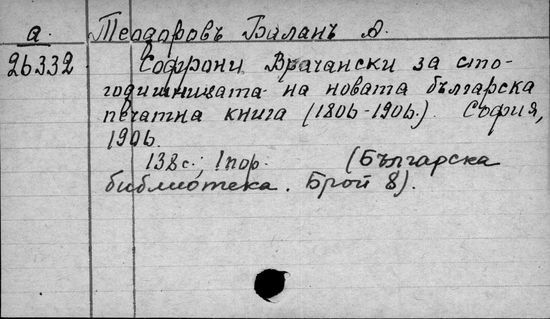 а. Теодоровъ Баланъ А.
26332 Софрони Врачански за сто-
годишницата на новата българска
печатна книга (1806-1906.). София,
1906.
138 с.; 1 пор. (Българска
библиотека. Брой 8).